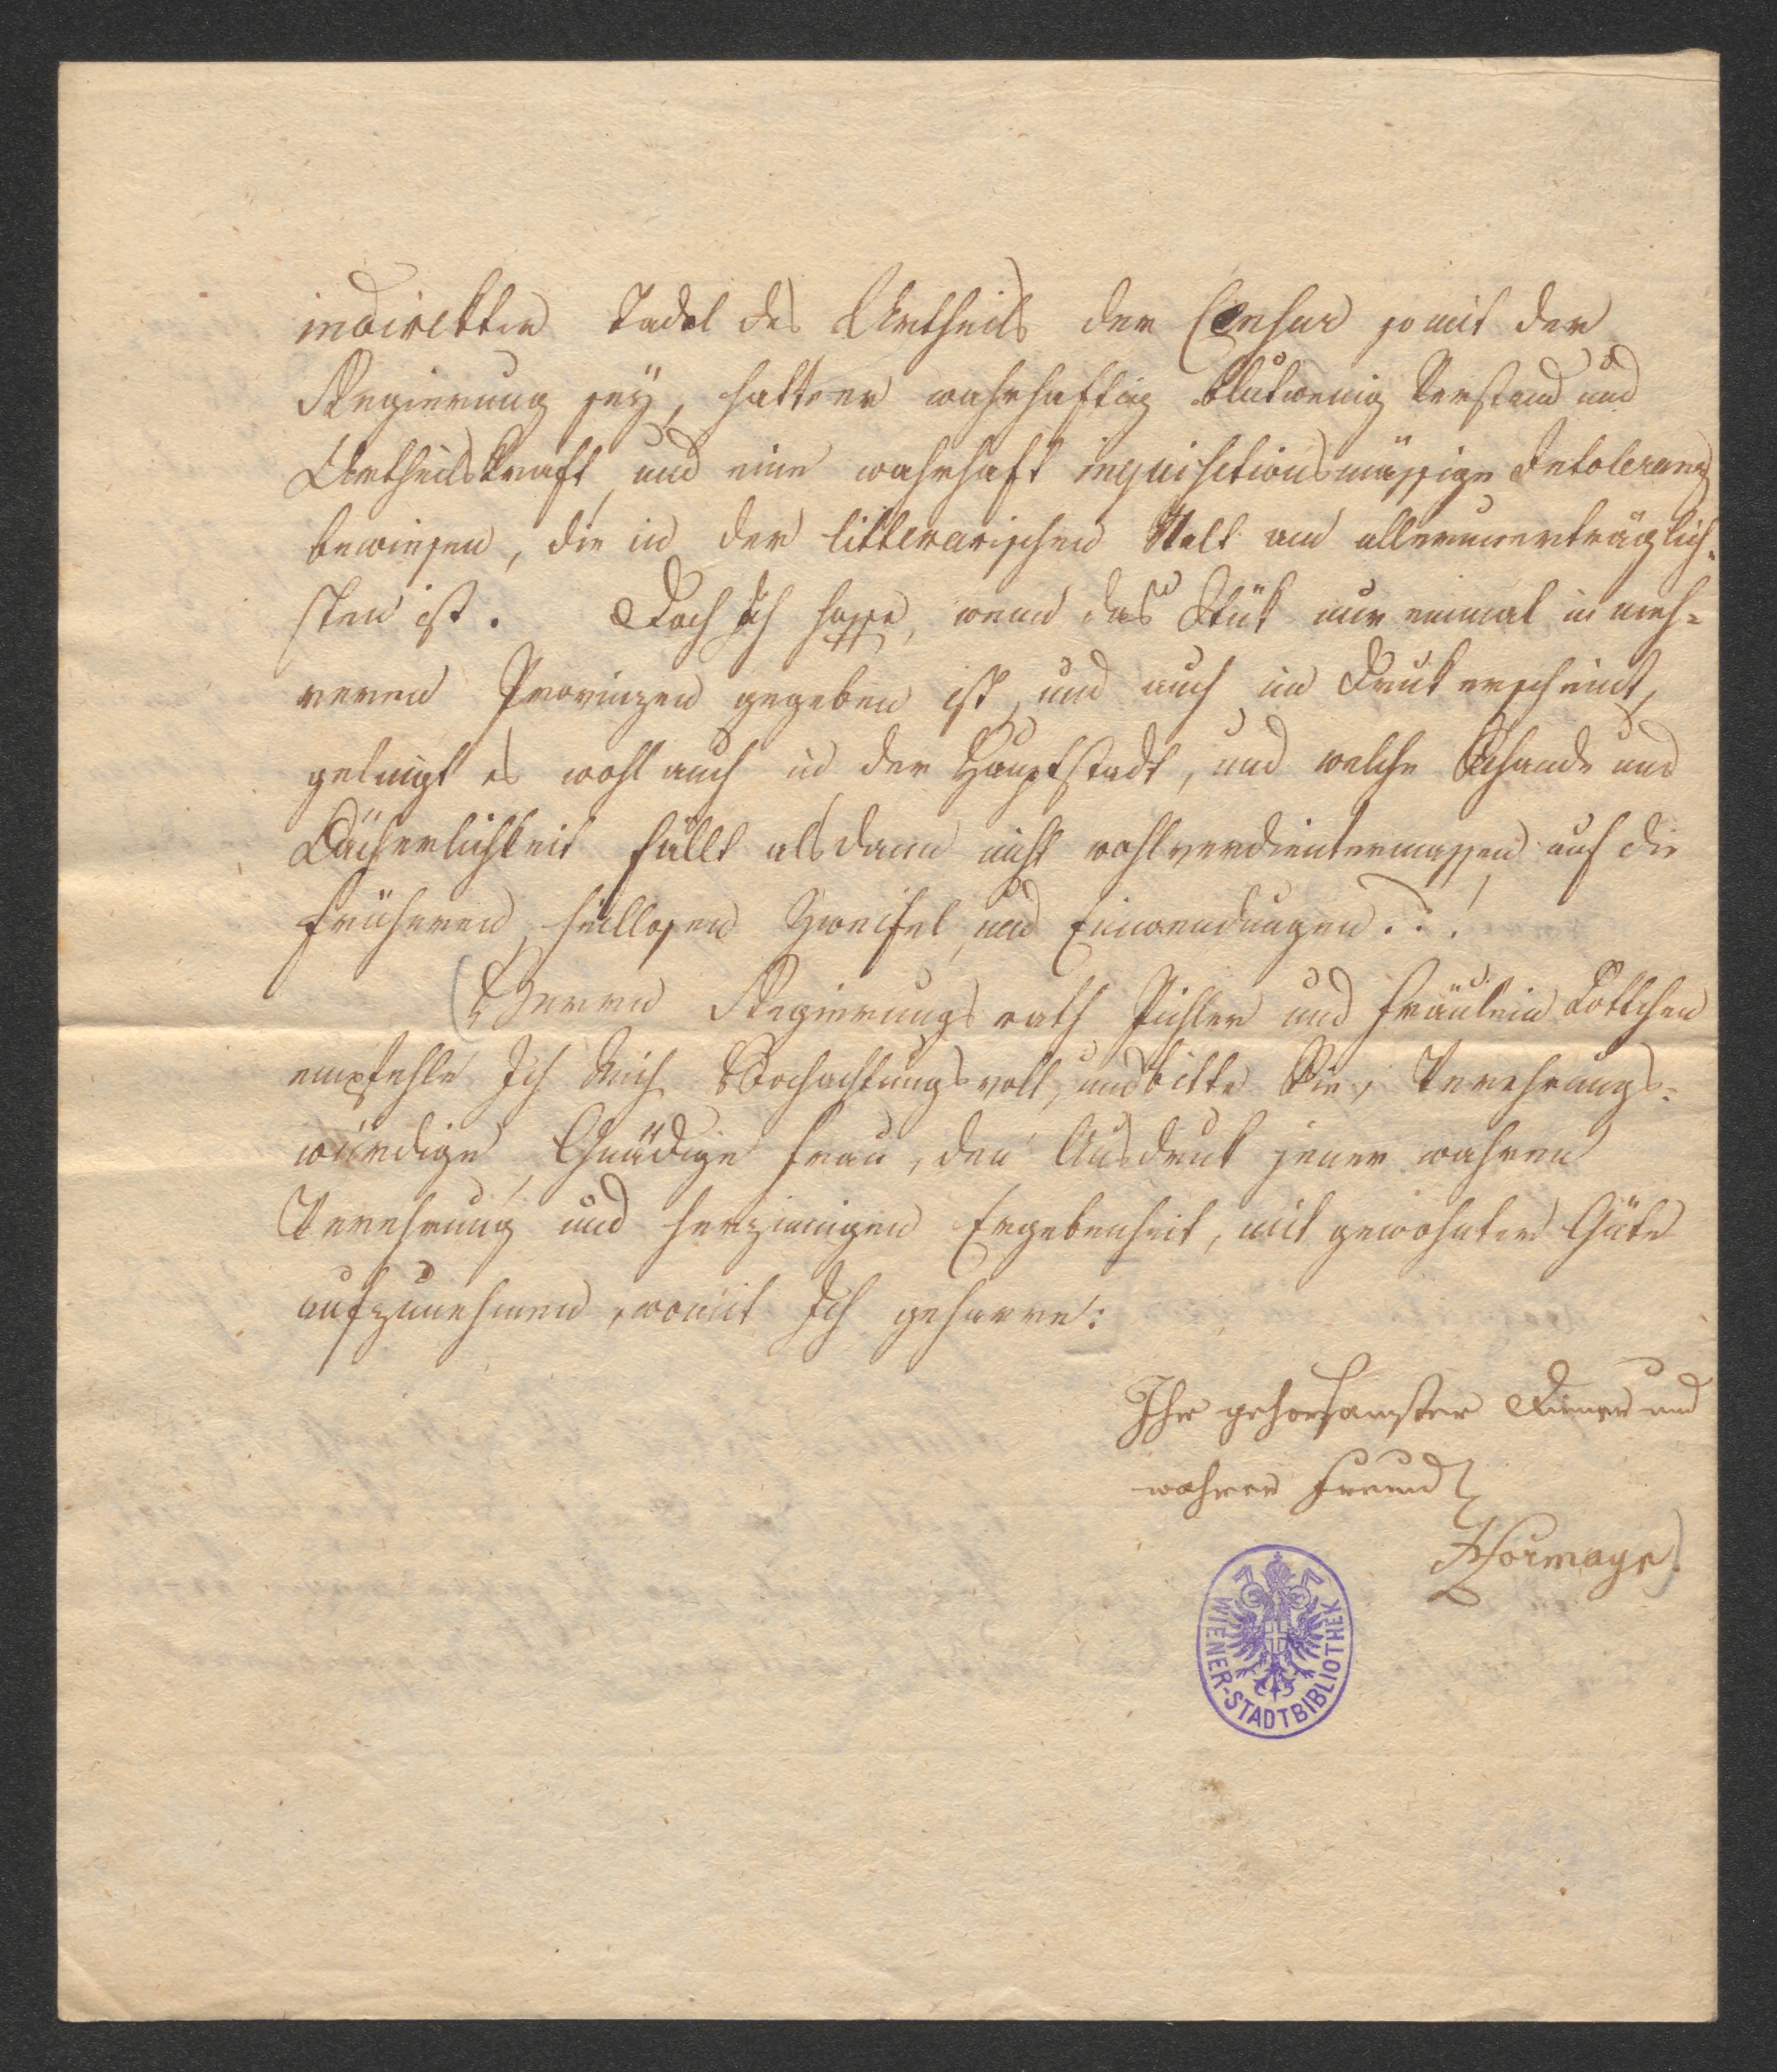 indirekter Tadel des Urtheils der Censur somit der
Regierung sey, hatte er wahrhaftig blutwenig Verstand und
Urtheilskraft, und eine wahrhaft inquisitionsmässige Intoleranz
bewiesen, die in der litterarischen Welt am allerunerträglich-
sten ist. Doch ich hoffe, wenn das Stük nur einmal in meh-
reren Provinzen gegeben ist, und auch im Druk erscheint,
gelingt es wohl auch in der Hauptstadt, und welche Schande und
Lächerlichkeit fällt alsdann nicht wohlverdientermassen auf die
früheren, Zweifel und Einwendungen..!
Herrn Regierungsrath Pichler und Fräulein Lottchen
empfehle Ich Mich Hochachtungsvoll, und bitte Sie, Verehrungs-
würdige Gnädige Frau, den Ausdruk jener wahren
Verehrung und herzinnigen Ergebenheit, mit gewohnter Güte
aufzunehmen, womit Ich geharre:
Ihr gehorsamster Diener und
wahrer Freund
Hormayr
WIENER-STADTBIBLIOTHEK